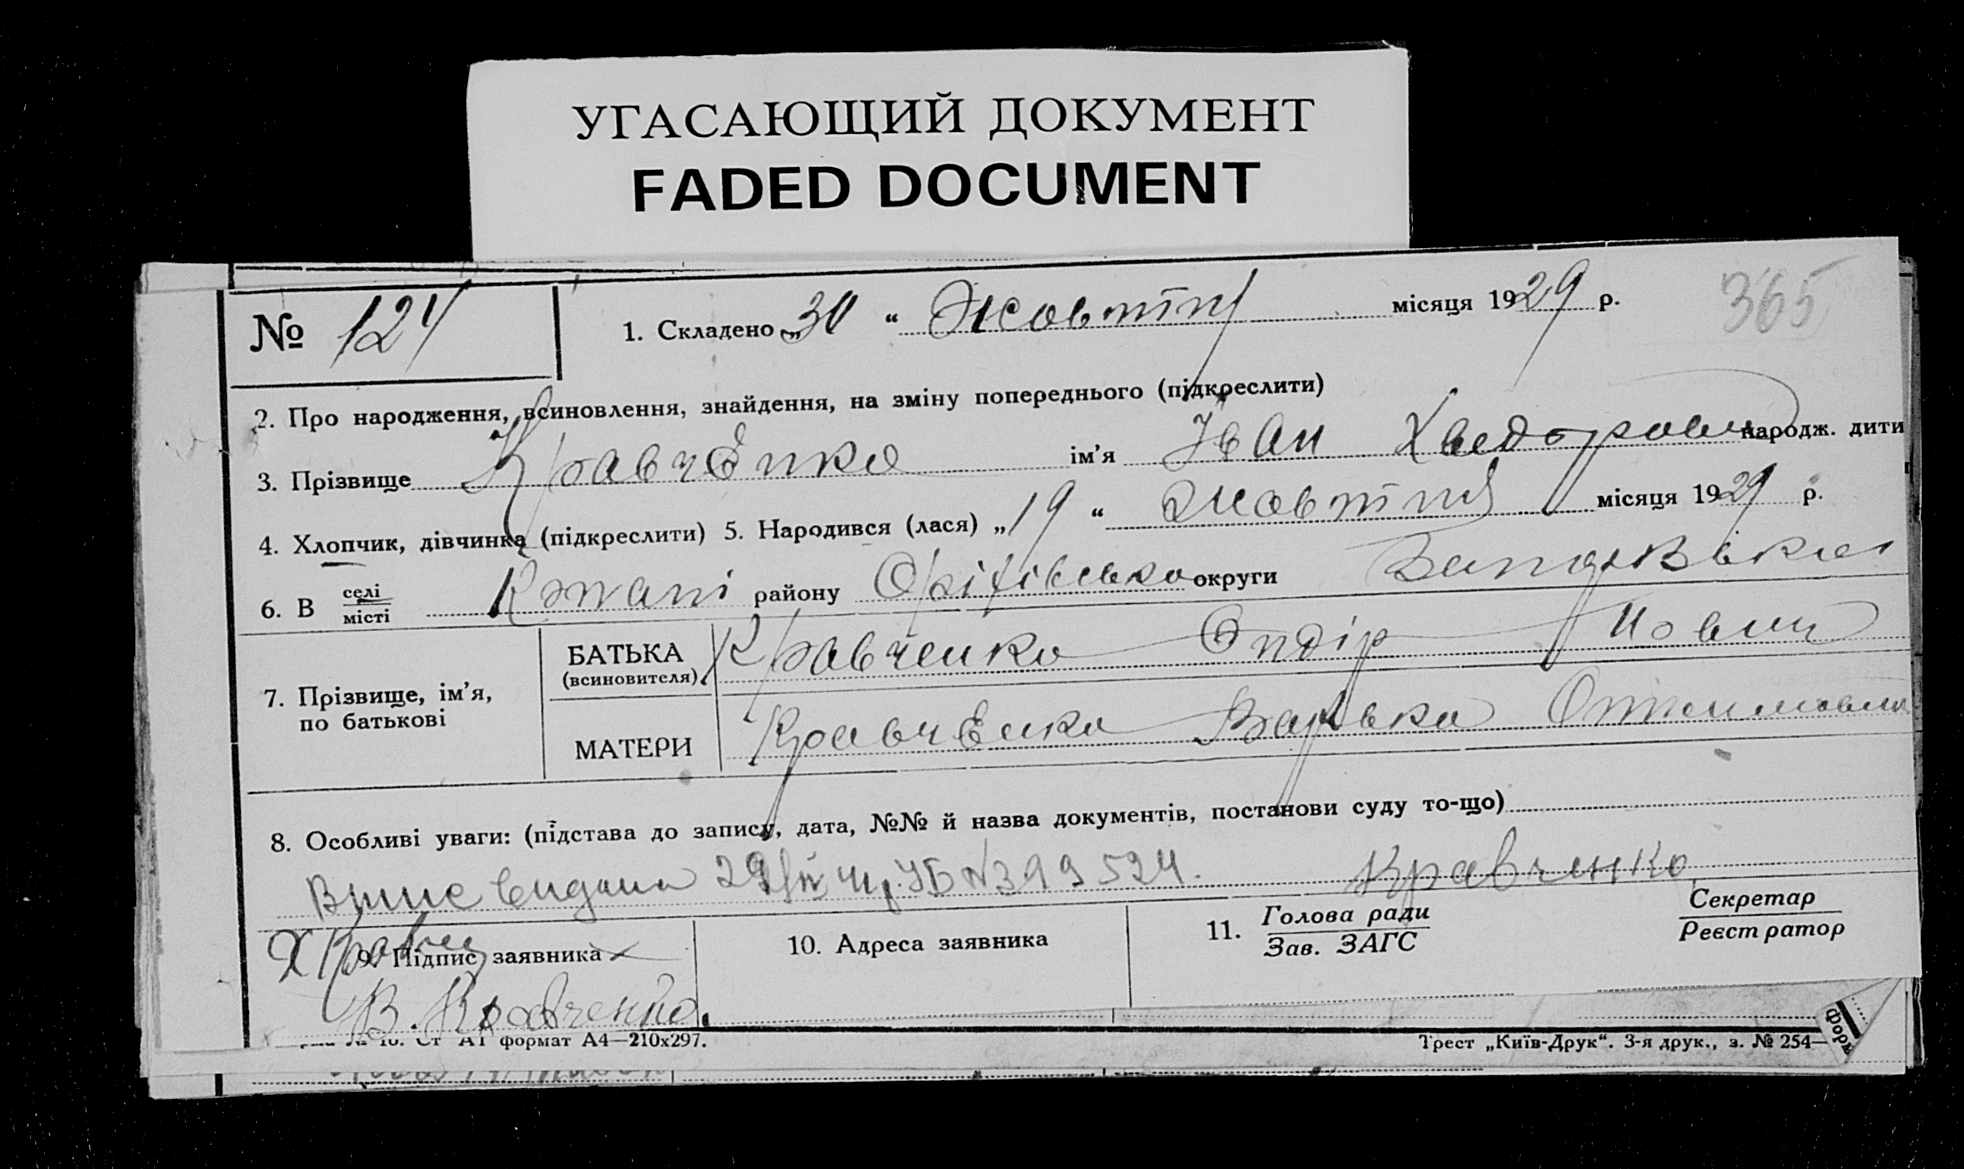 УГАСАЮЩИЙ ДОКУМЕНТ
FADED DOCUMENT
365
№ 124
1. Складено „30 “ Жовтня місяця 1929 р.
2. Про народження, всиновлення, знайдення, на зміну попереднього (підкреслити)
3. Прізвище Кравченко ім’я Іван Хведорович народж. дити
4. Хлопчик, дівчинка (підкреслити) 5. Народився (лася) „19 “ Жовтня місяця 1929 р.
6. В селі
місті
району Оріхівсько округи
7. Прізвище, ім’я,
по батькові
БАТЬКА
(всиновителя)
Кравченко
МАТЕРИ
Кравченко Варька
8. Особливі уваги: (підстава до запису, дата, №№ й назва документів, постанови суду то-що)
видана УБ N 399524. Кравченко
9. Підпис заявника
В. Кравченко.
10. Адреса заявника
11. Голова ради
Зав. ЗАГС
Секретар
Реєстратор
формат А4—210х297.
Трест „Київ-Друк“. 3-я друк., з. № 254—
Форм